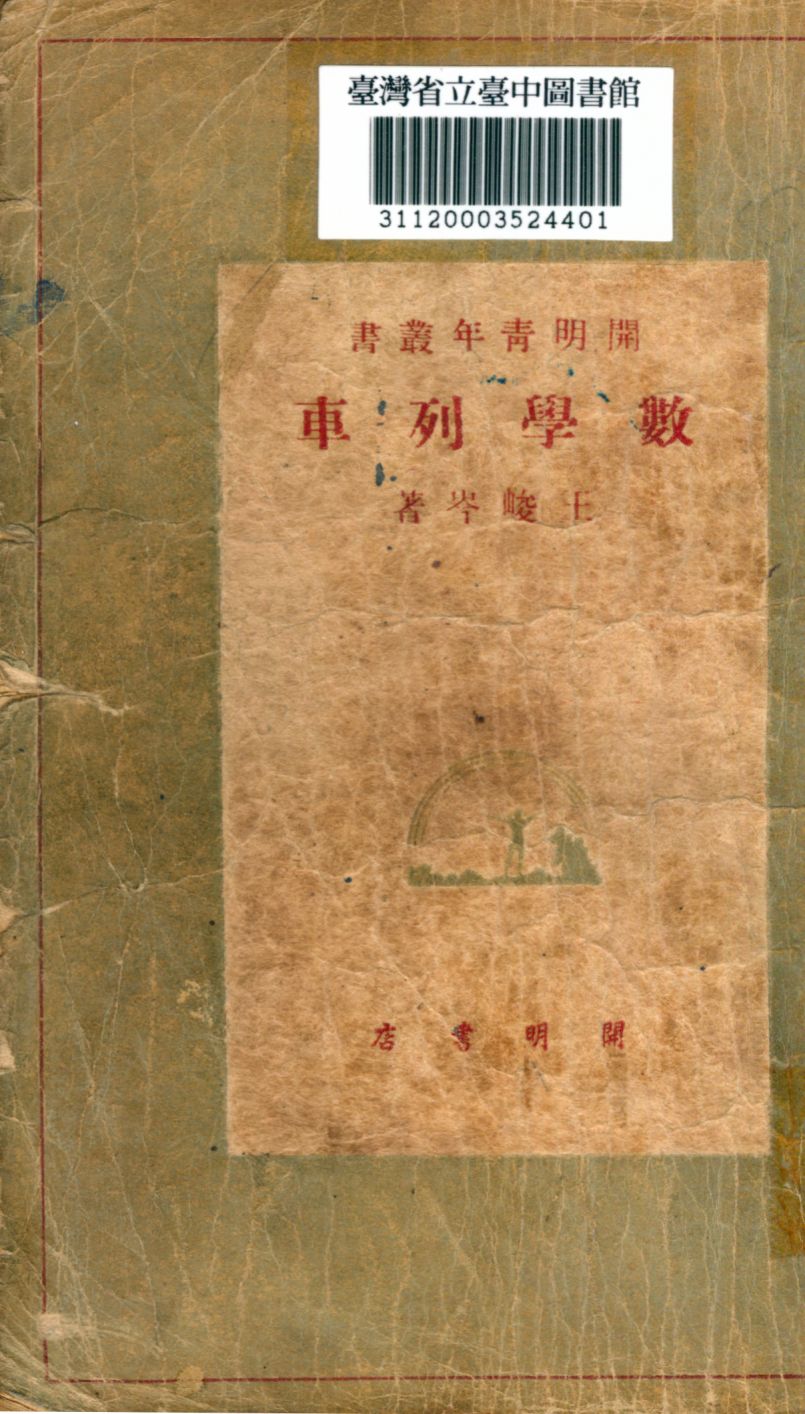 臺灣省立臺中圖書館
31120003524401
開明靑年叢書
數學列車
王峻岑著
開明書店